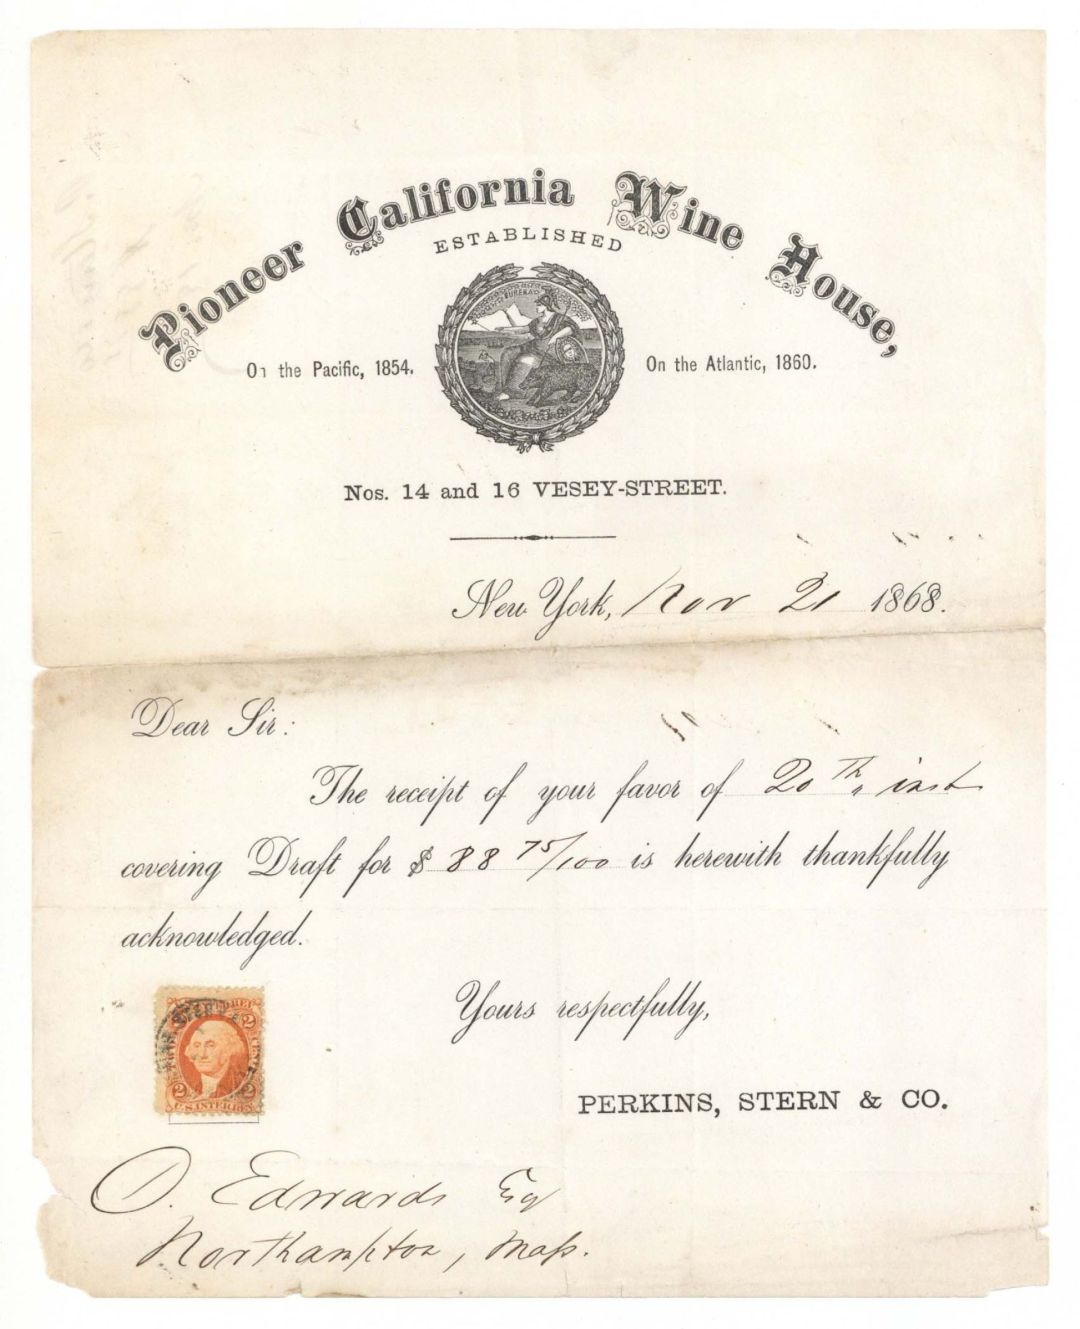 Pioneer California Wine House,
ESTABLISHED
EUREKA
On the Pacific, 1854.
On the Atlantic, 1860.
Nos. 14 and 16 VESEY-STREET.
New York, Nov 21 1868.
Dear Sir:
The receipt of your favor of 20th inst
covering Draft for $ 88 75/100 is herewith thankfully
acknowledged.
Yours respectfully,
PERKINS, STERN & CO.
2
2 2
U.S. INTER. REV.
O. Edwards Esq
Northampton, Mass.